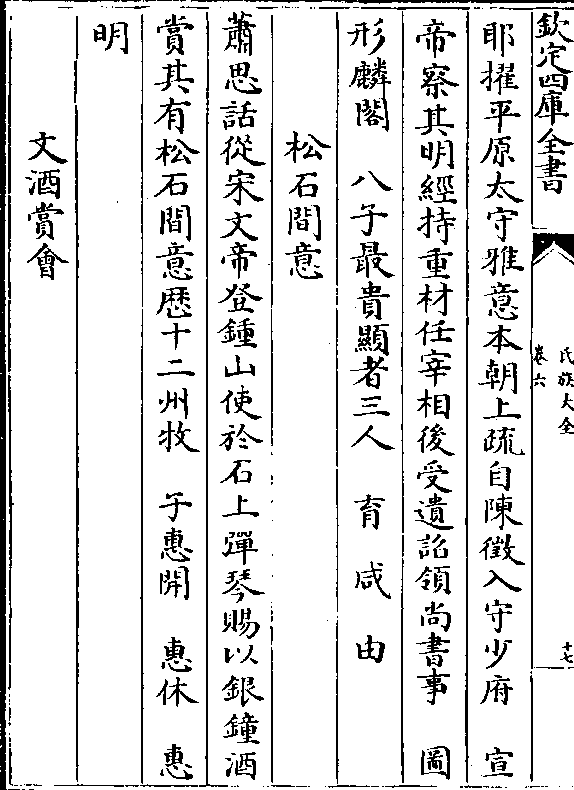 欽定四庫全書
氏族大全
卷六
十七
耶擢平原太守雅意本朝上疏自陳徵入守少府　宣
帝察其明經持重材任宰相後受遺詔領尚書事　圖
形麟閣　八子最貴顯者三人　育　咸　由
松石間意
蕭思話從宋文帝登鍾山使於石上彈琴賜以銀鐘酒
賞其有松石間意歴十二州牧　子惠開　惠休　惠
明
文酒賞會